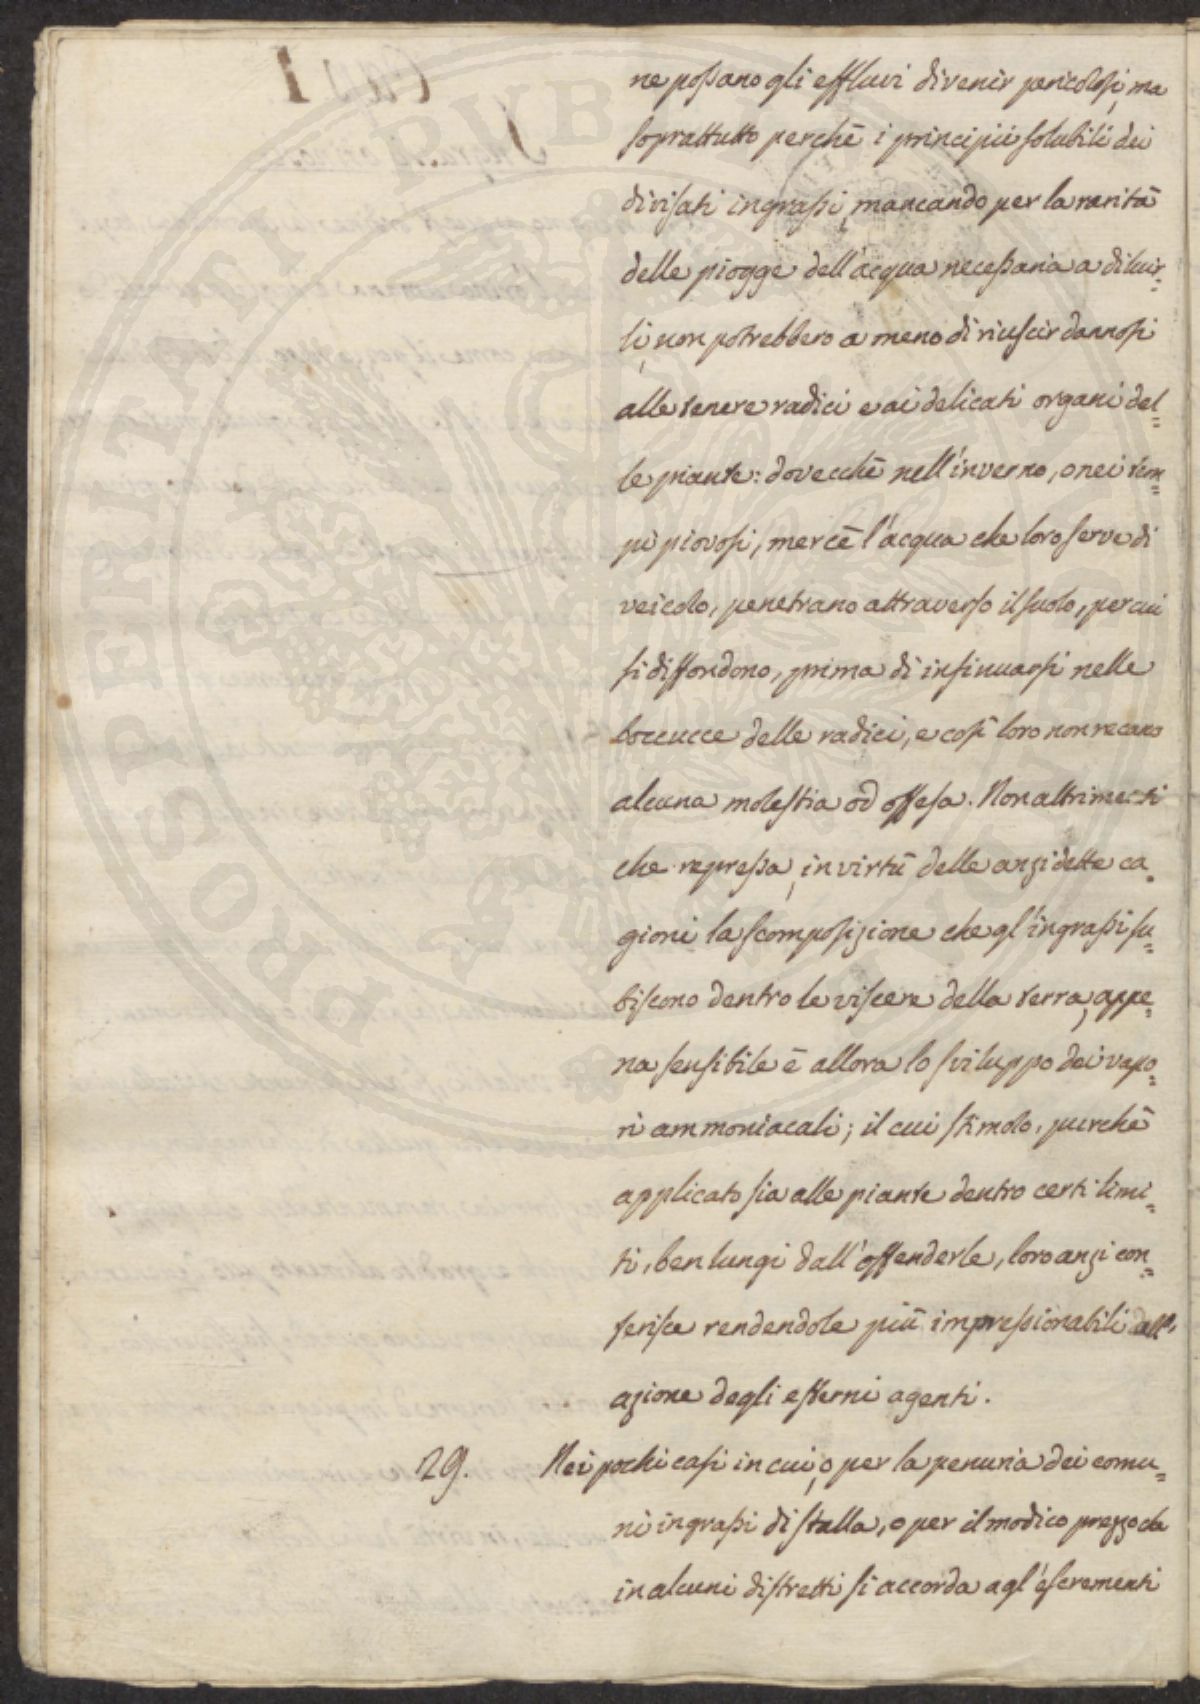 ne possano gli effluvi divenir pericolosi, ma
soprattutto perchè i principii solubili dei
divisati ingrassi, mancando per la rarità
delle piogge dell'acqua necessaria a diluir=
li, non potrebbero a meno di riuscir dannosi
alle tenere radici e ai delicati organi del=
le piante: dovecchè nell'inverno, o nei tem=
pi piovosi, mercè l'acqua che loro serve di
veicolo, penetrano attraverso il suolo, per cui
si diffondono, prima di insinuarsi nelle
boccucce delle radici, e così loro non recano
alcuna molestia od offesa. Non altrimenti
che repressa, in virtù delle anzidette ca=
gioni la scomposizione che gl'ingrassi su=
biscono dentro le viscere della terra, appe=
na sensibile è allora lo sviluppo dei vapo=
ri ammoniacali; il cui stimolo, purchè
applicato sia alle piante dentro certi limi=
ti, ben lungi dall'offenderle, loro anzi con=
ferisce rendendole più impressionabili dall'
azione degli esterni agenti.
29. Nei pochi casi in cui, o per la penuria dei comu=
ni ingrassi di stalla, o per il modico prezzo che
in alcuni distretti si accorda agl'escrementi
PROSPERITATI PUBLICAE